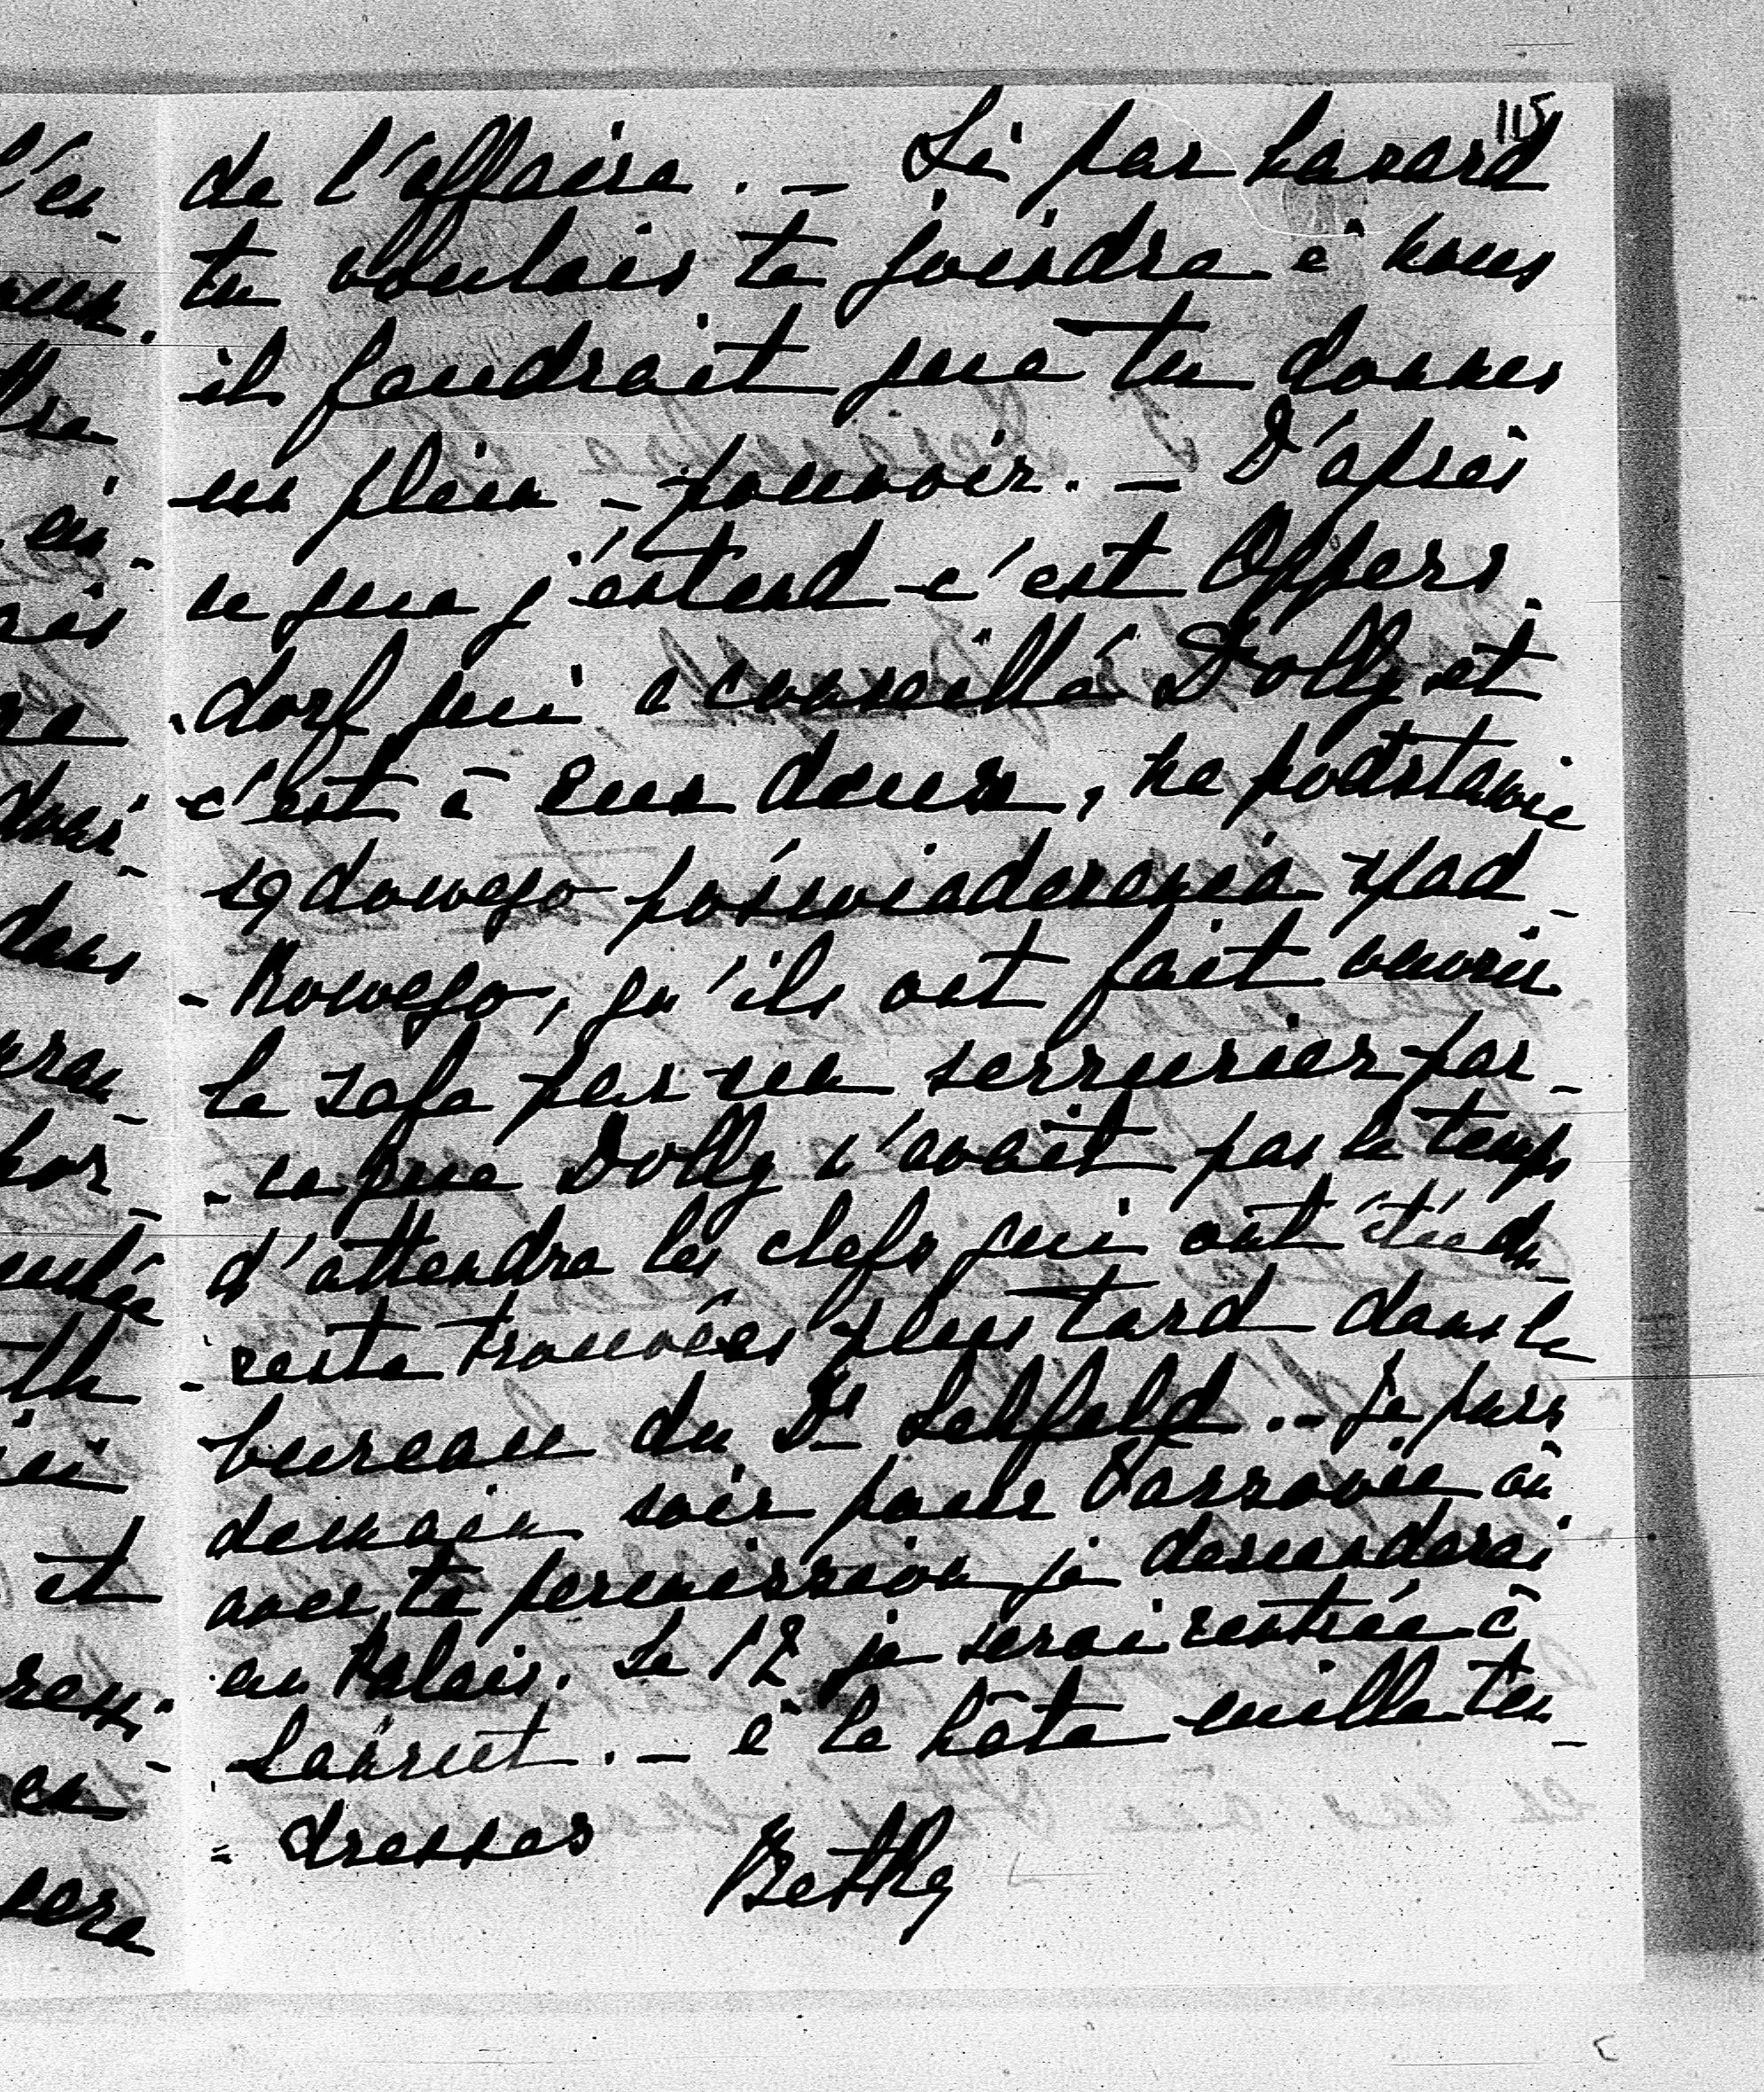 115
l'en de l'affaire . — Si par hasard
tu voulais te joindre à nous
il faudrait que tu donnes
un plein - pouvoir. — D'après
ce que j'entend c'est Oppers-
-dorf qui a conseillé Dolly et
c'est à eux deux, na podstawie
sądowego poświadczenia spad-
-kowego, qu'ils ont fait ouvrir
le safe par un serrurier par-
-ce que Dolly n'avait pas le temps
d'attendre les clefs qui ont été du
-reste trouvées plus tard dans le
bureau du Dr Sehfeld. — Je pars
demain soir pour Varsovie où
avec ta permission je descenderai
au Palais. Le 12 je serai rentrée à
Łańcut. — à la hâte mille ten-
= dresses Bethy